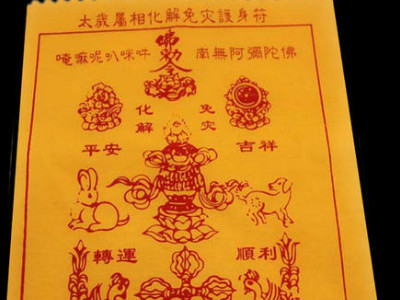 太歲屬相化解免灾護身符
佛勅令
唵嘛呢叭咪吽 南無阿彌陀佛
化解 免灾
平安 吉祥
轉運 順利